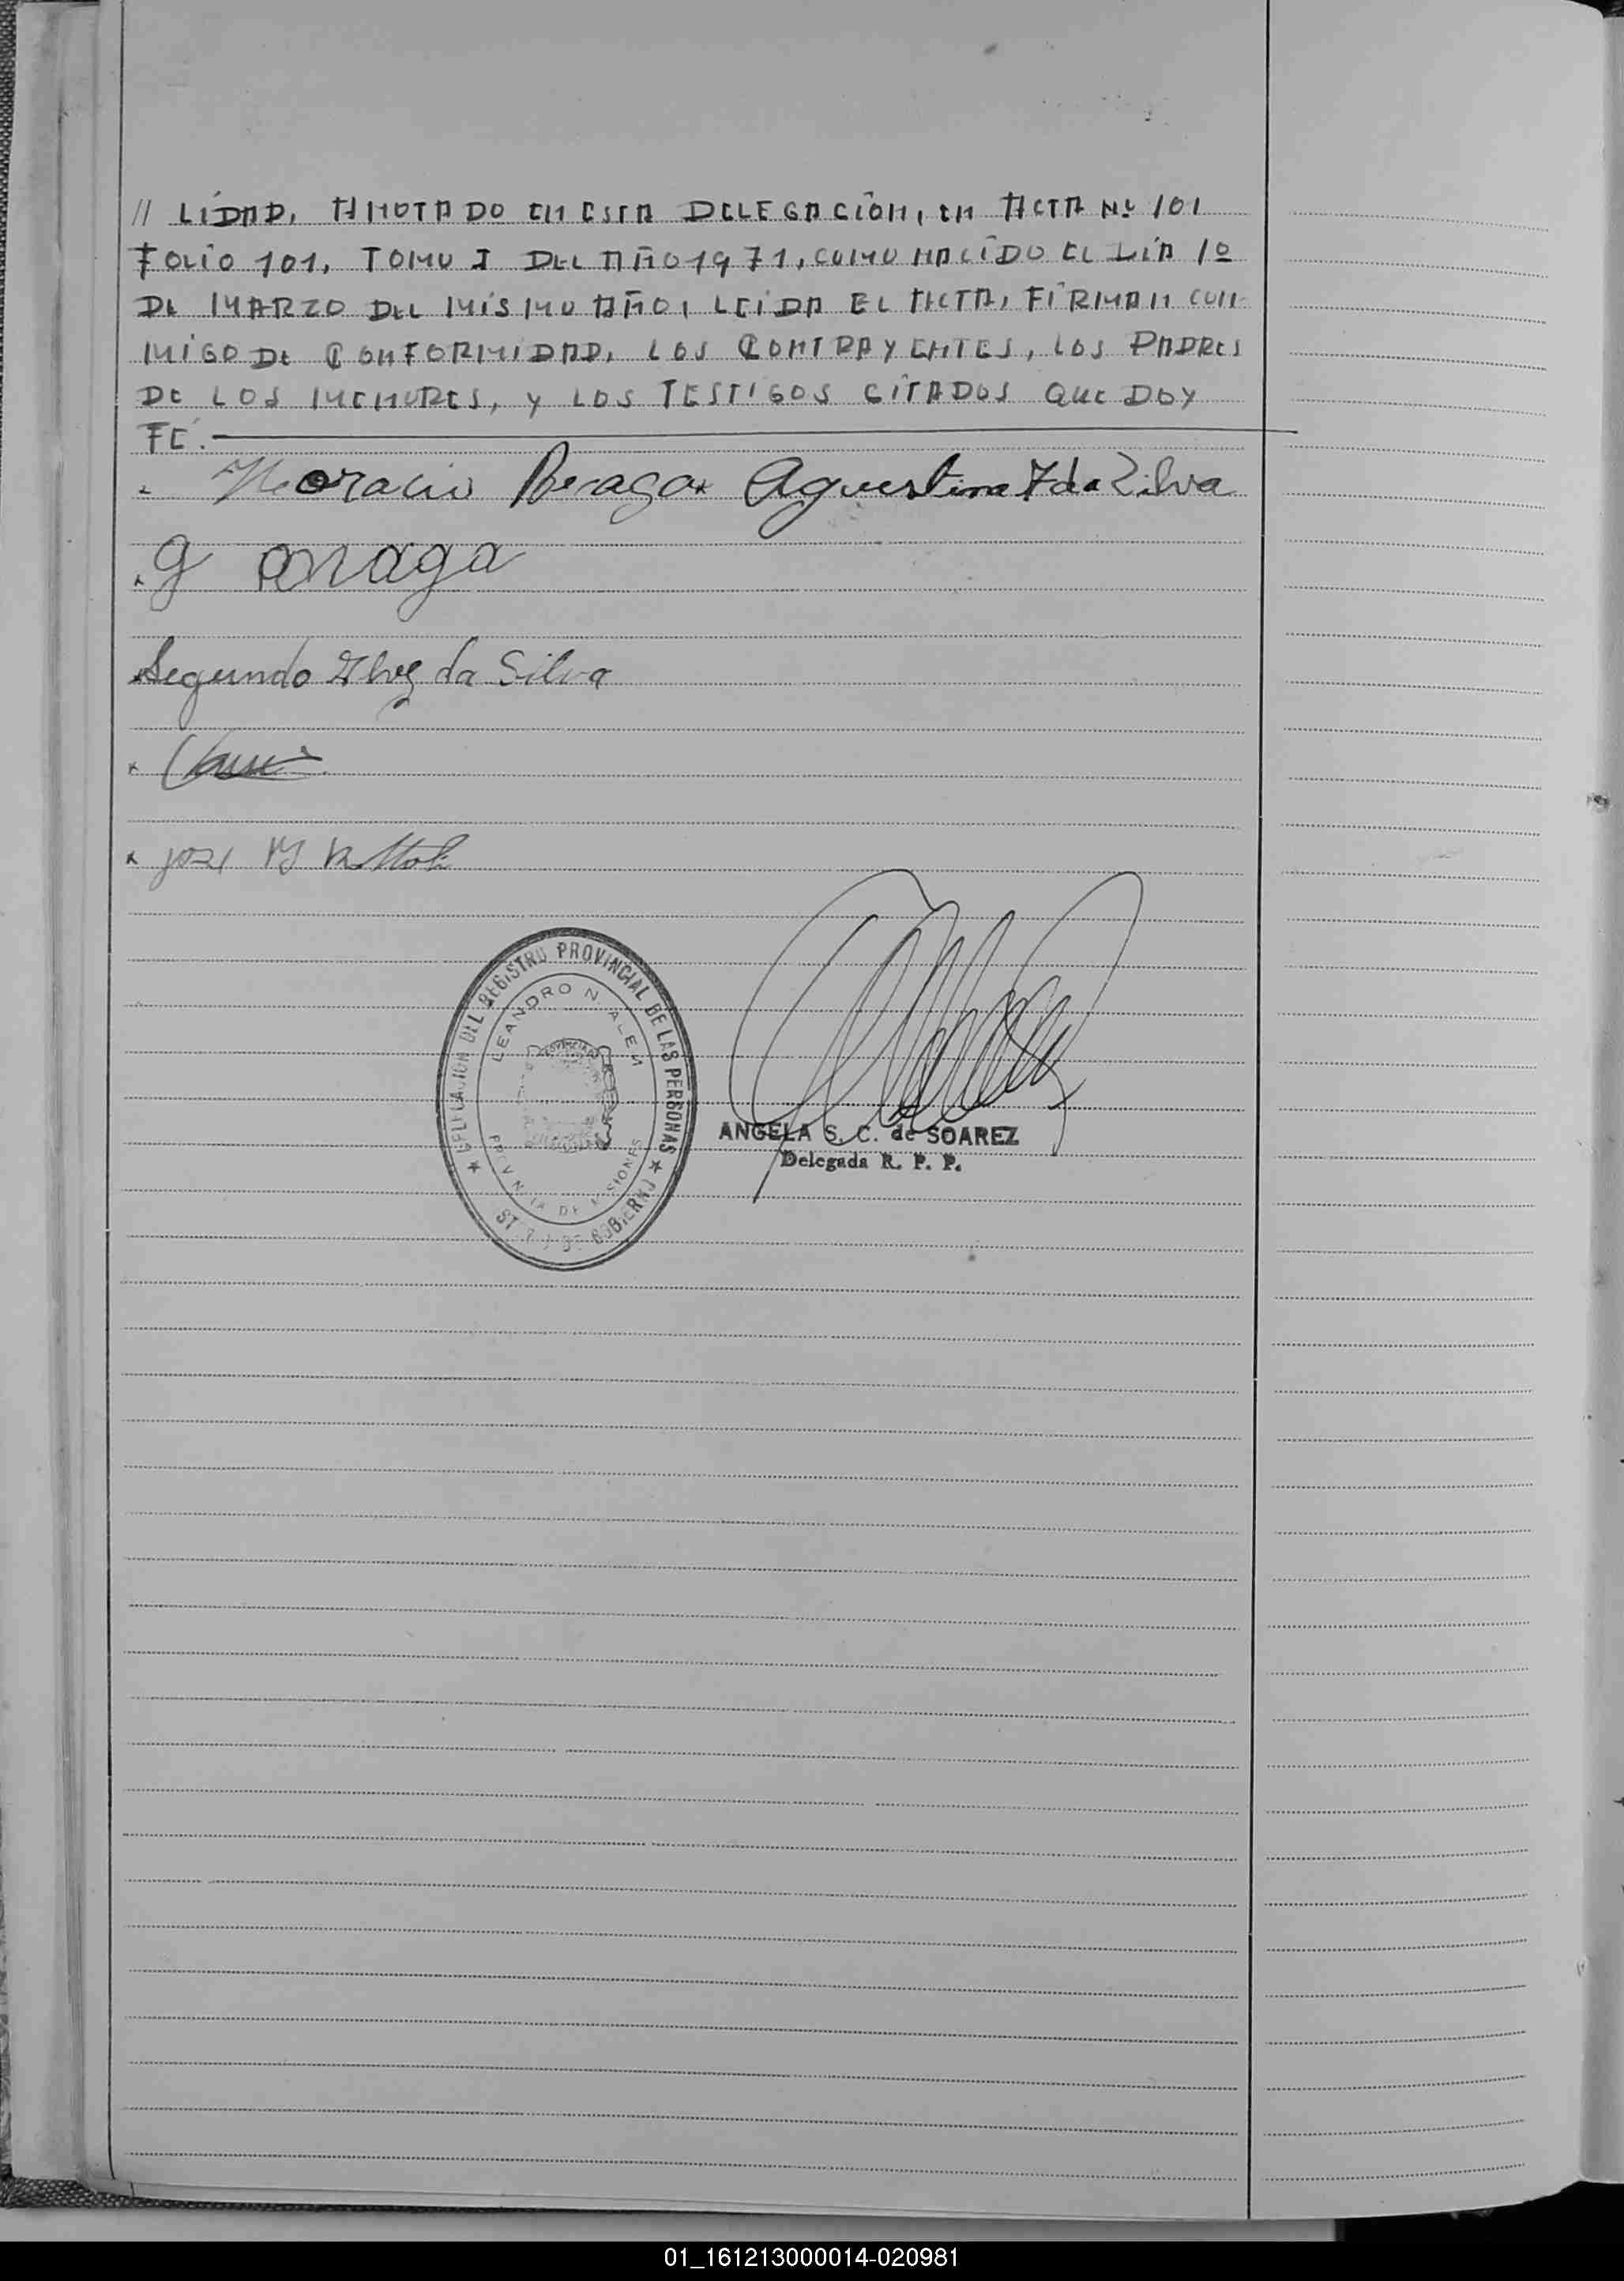 // LIDAD, ANOTADO EN ESTA DELEGACIÓN, EN ACTA Nº 101
FOLIO 101, TOMO I DEL AÑO 1971, COMO NACIDO EL DÍA 1º
DE MARZO DEL MISMO AÑO, LEIDA EL ACTA, FIRMAN CON-
MIGO DE CONFORMIDAD, LOS CONTRAYENTES, LOS PADRES
DE LOS MENORES, Y LOS TESTIGOS CITADOS QUE DOY
FÉ.
Horacio Braga Agustina F da Silva
Segundo da Silva
DELEGACION DEL REGISTRO PROVINCIAL DE LAS PERSONAS
LEANDRO N. ALEM
PROVINCIA DE MISIONES
DE GOBIERNO
ANGELA S. C. de SOAREZ
Delegada R. P. P.
01_161213000014-020981